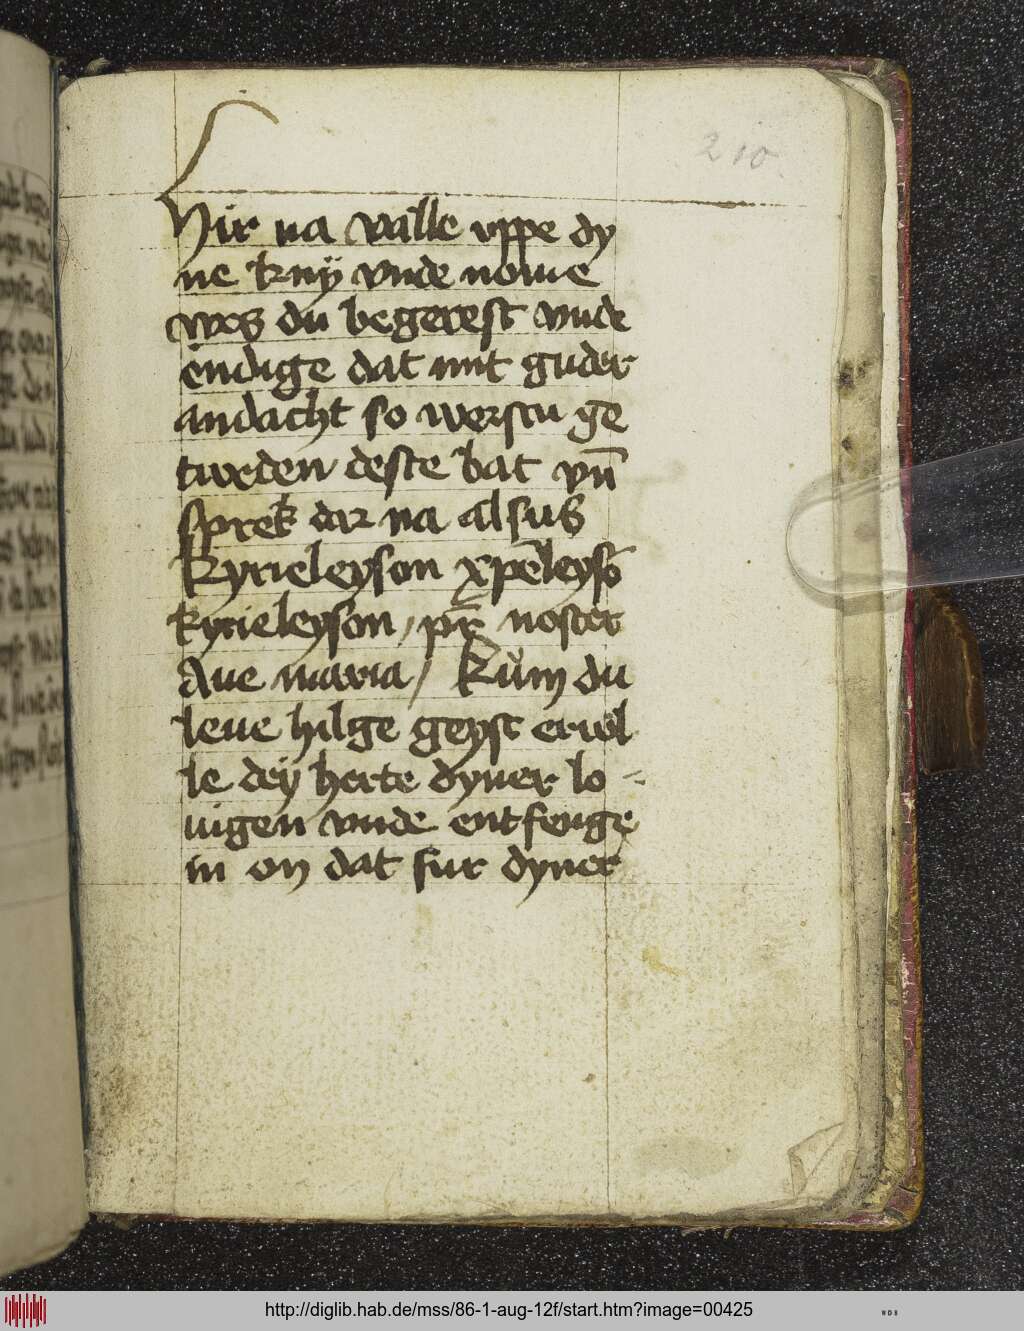 210
Hir na valle vppe dy
ne knÿ vnde nome
wes du begerest vnde
endige dat mit guder
andacht so werstu ge
tweden deste bat vn̄
sprek dar na alsus
kyrieleyson xp̄eleysō
kyrieleyson / pr̄ noster
Aue maria / Kum du
leue hilge geyst eruol
le dey herte dyner lo-
uigen vnde entfenge
in on dat fur dyner
http://diglib.hab.de/mss/86-1-aug-12f/start.htm?image=00425